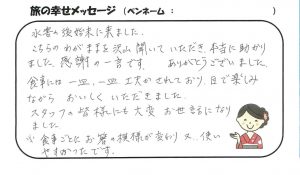 旅の幸せメッセージ (ペンネーム : )
永寿の後始末に来ました。
こちらのわがままを沢山聞いていただき、本当に助かり
ました。感謝の一言です。 ありがとうございました。
食事には 一皿、一皿 工夫がされており、目で楽しみ
ながら おいしく いただきました。
スタッフの皆様にも大変 お世話になり
ました。
※ 食事ごとに お箸の模様が変わり 又、使い
やすかったです。